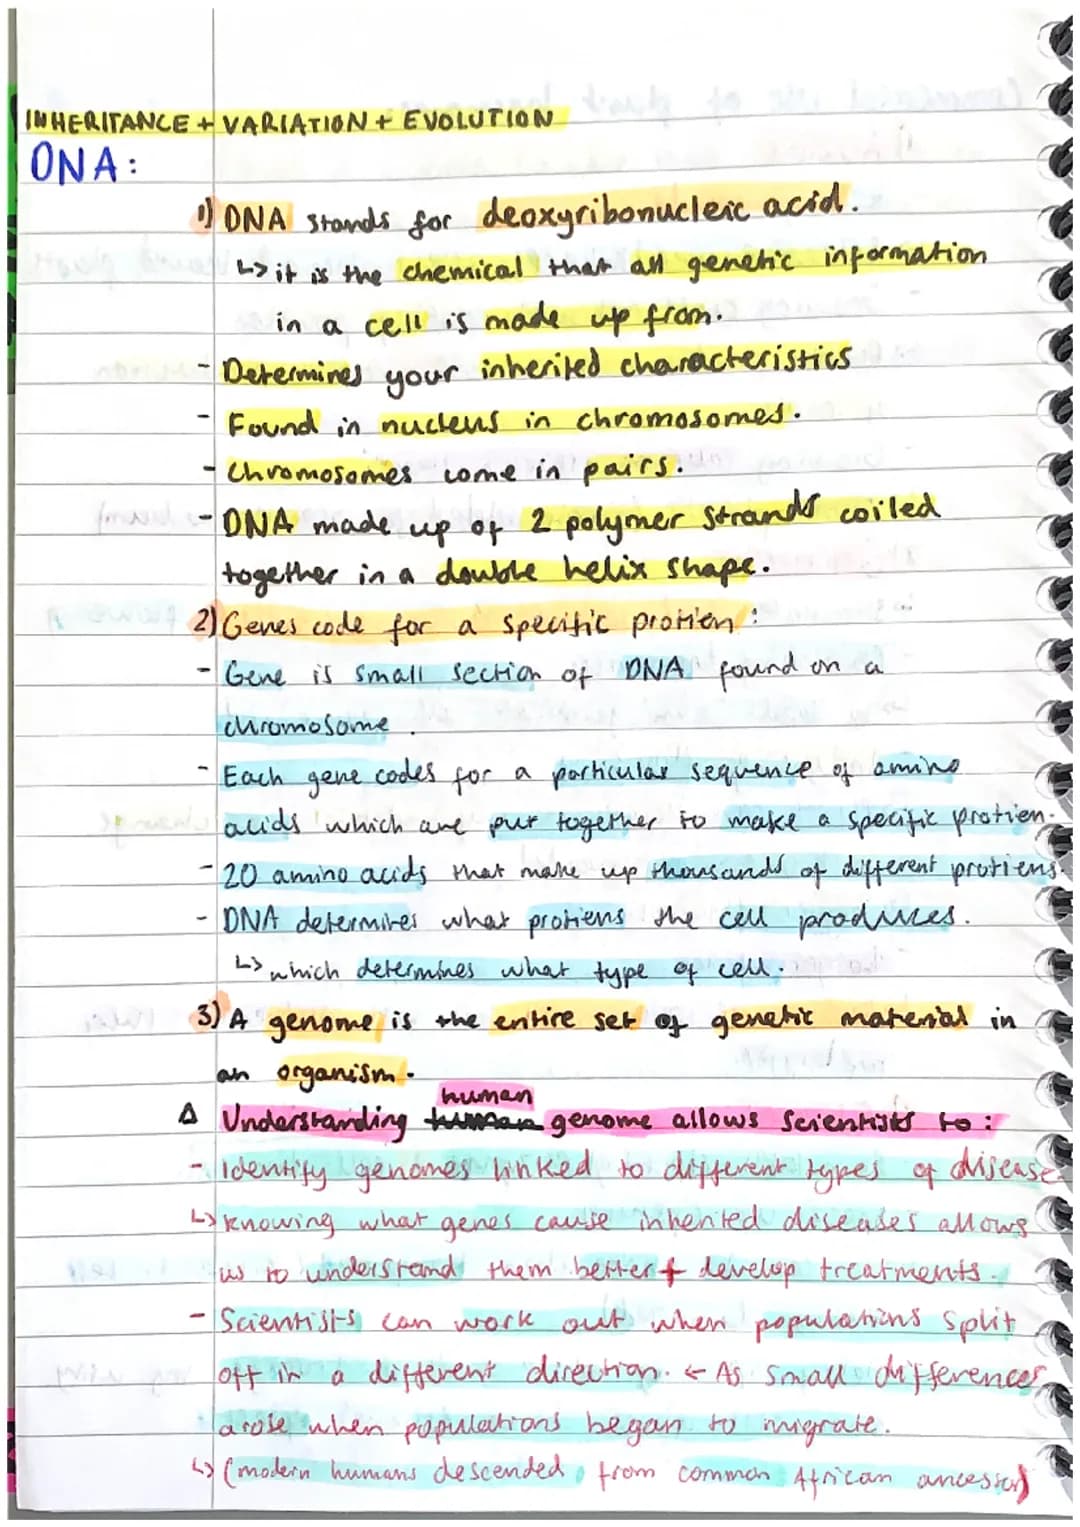 INHERITANCE + VARIATION + EVOLUTION
DNA:
1) DNA stands for deoxyribonucleic acid.
↳ it is the chemical that all genetic information
in a cell is made up from.
- Determines your inherited characteristics
- Found in nucleus in chromosomes.
- Chromosomes come in pairs.
- DNA made up of 2 polymer strands coiled
together in a double helix shape.
2) Genes code for a specific protien:
- Gene is small section of DNA found on a
chromosome.
- Each gene codes for a particular sequence of amino
acids which are put together to make a specific protien.
- 20 amino acids that make up thousands of different protiens.
- DNA determines what protiens the cell produces.
↳ which determines what type of cell.
3) A genome is the entire set of genetic material in
an organism.
human
Δ Understanding genome allows scientists to:
- Identify genomes linked to different types of disease
↳ knowing what genes cause inherited diseases allows
us to understand them better + develop treatments.
- Scientists can work out when populations split
off in a different direction. ← As small differences
arose when populations began to migrate.
↳ (modern humans descended from common African ancestor)